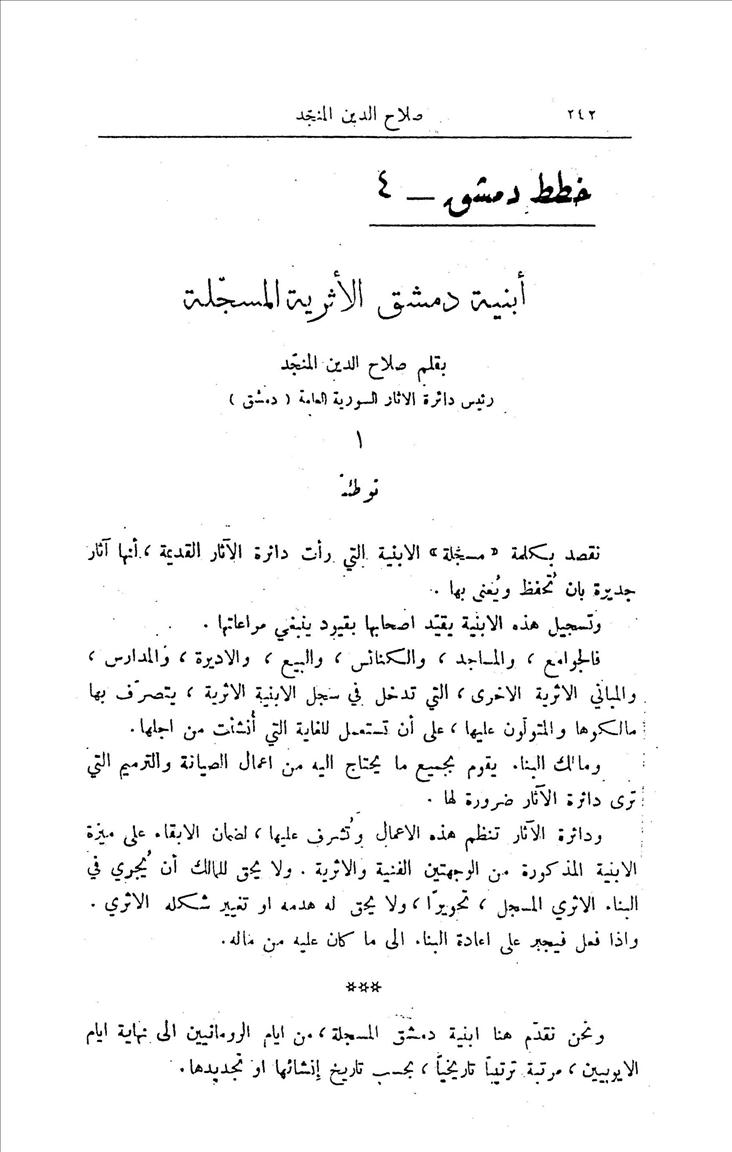 ٢٤٢ صلاح الدين المنجّد
خطط دمشق — ٤
أبنية دمشق الأثرية المسجّلة
بقلم صلاح الدين المنجّد
رئيس دائرة الاثار السورية العامة ( دمشق )
١
توطئة
نقصد بكلمة «مسجّلة» الابنية التي رأت دائرة الآثار القديمة ، أنها آثار
جديرة بان تُحفظ ويُعنى بها .
وتسجيل هذه الابنية يقيّد اصحابها بقيود ينبغي مراعاتها .
فالجوامع ، والمساجد ، والكنائس ، والبيع ، والاديرة ، والمدارس ،
والمباني الاثرية الاخرى ، التي تدخل في سجل الابنية الاثرية ، يتصرّف بها
مالكوها والمتولّون عليها ، على أن تستعمل للغاية التي أُنشئت من اجلها .
ومالك البناء يقوم بجميع ما يحتاج اليه من اعمال الصيانة والترميم التي
ترى دائرة الآثار ضرورة لها .
ودائرة الآثار تنظم هذه الاعمال وتُشرف عليها ، لضمان الابقاء على ميزة
الابنية المذكورة من الوجهتين الفنية والاثرية . ولا يحق للمالك أن يُجري في
البناء الاثري المسجل ، تحويرًا ، ولا يحق له هدمه او تغيير شكله الاثري .
واذا فعل فيجبر على اعادة البناء الى ما كان عليه من ماله .
***
ونحن نقدّم هنا ابنية دمشق المسجلة ، من ايام الرومانيين الى نهاية ايام
الايوبيين ، مرتبة ترتيباً تاريخياً ، بحسب تاريخ إنشائها او تجديدها .